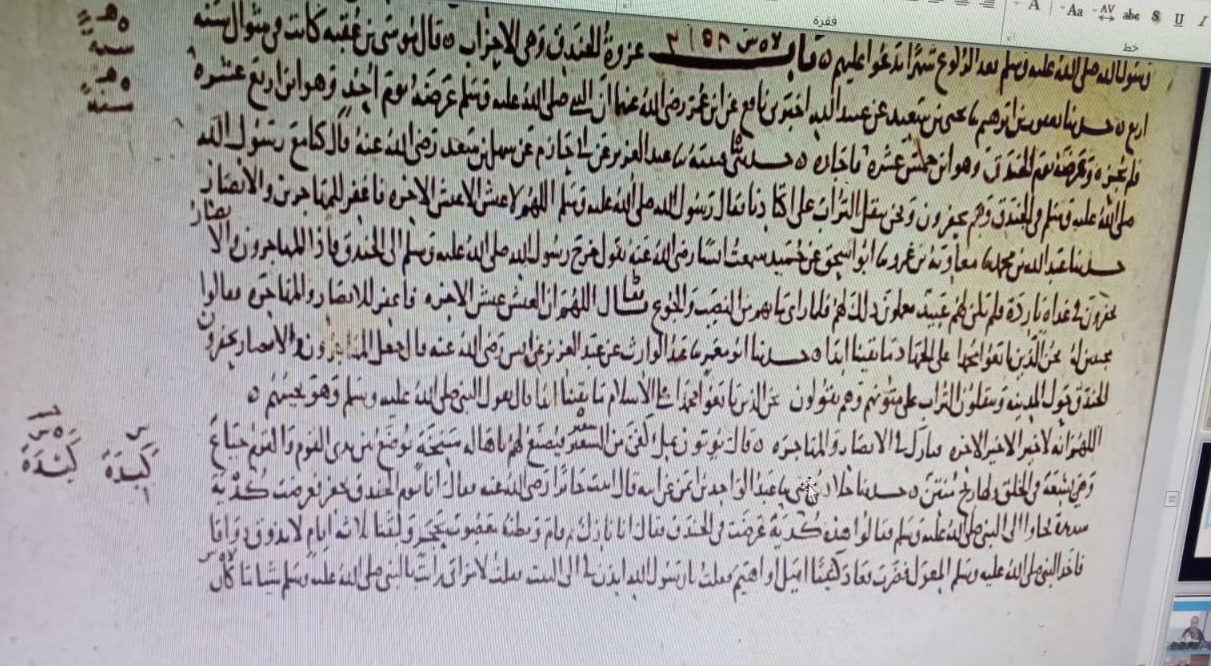 فقرة
خط
رسول الله صلى الله عليه وسلم بعد الركوع شهرا يدعوا عليهم ه باب غزوة الخندق وهي الاحزاب ه قال موسى بن عقبة كانت في شوال سنة
اربع ه حدثنا يعقوب بن ابرهيم نا يحيى بن سعيد عن عبيد الله اخبرني نافع عن ابن عمر رضي الله عنهما ان النبي صلى الله عليه وسلم عرضه يوم احد وهو ابن اربع عشرة
فلم يجزه وعرضه يوم الخندق وهو ابن خمس عشرة فاجازه ه حدثني قتيبة نا عبد العزيز عن ابي حازم عن سهل بن سعد رضي الله عنه قال كنا مع رسول الله
صلى الله عليه وسلم في الخندق وهم يحفرون ونحن ننقل التراب على اكتادنا فقال رسول الله صلى الله عليه وسلم اللهم لا عيش الا عيش الاخره فاغفر للمهاجرين والانصار
حدثنا عبد الله بن محمد نا معاوية بن عمرو نا ابو اسحق عن حميد سمعت انسا رضي الله عنه يقول خرج رسول الله صلى الله عليه وسلم الى الخندق فاذا المهاجرون والانصار
يحفرون في غداة باردة فلم يكن لهم عبيد يعملون ذلك لهم فلما راى ما بهم من النصب والجوع قال اللهم ان العيش عيش الاخره فاغفر للانصار والمهاجره فقالوا
مجيبين له نحن الذين بايعوا محمدا على الجهاد ما بقينا ابدا ه حدثنا ابو معمر نا عبد الوارث عن عبد العزيز عن انس رضي الله عنه قال جعل المهاجرون والانصار يحفرون
الخندق حول المدينه وينقلون التراب على متونهم وهم يقولون نحن الذين بايعوا محمدا على الاسلام ما بقينا ابدا قال يقول النبي صلى الله عليه وسلم وهو يجيبهم ه
اللهم انه لا خير الا خير الاخره فبارك في الانصار والمهاجره ه قال يوتون بمل كفي من الشعير فيصنع لهم باهالة سنخة توضع بين يدي القوم والقوم جياع
وهي بشعة في الحلق ولها ريح منتن ه حدثنا خلاد بن يحيى نا عبد الواحد بن ايمن عن ابيه قال اتيت جابرا رضي الله عنه فقال انا يوم الخندق نحفر فعرضت كدية
شديدة فجاوا الى النبي صلى الله عليه وسلم فقالوا هذه كدية عرضت في الخندق فقال انا نازل ثم قام وبطنه معصوب بحجر ولبثنا ثلاثه ايام لا نذوق ذواقا
فاخذ النبي صلى الله عليه وسلم المعول فضرب فعاد كثيبا اهيل او اهيم فقلت يا رسول الله ايذن لي الى البيت فقلت لامراتي رايت بالنبي صلى الله عليه وسلم شيا ما كان
كَبِدَة كَنِدَة